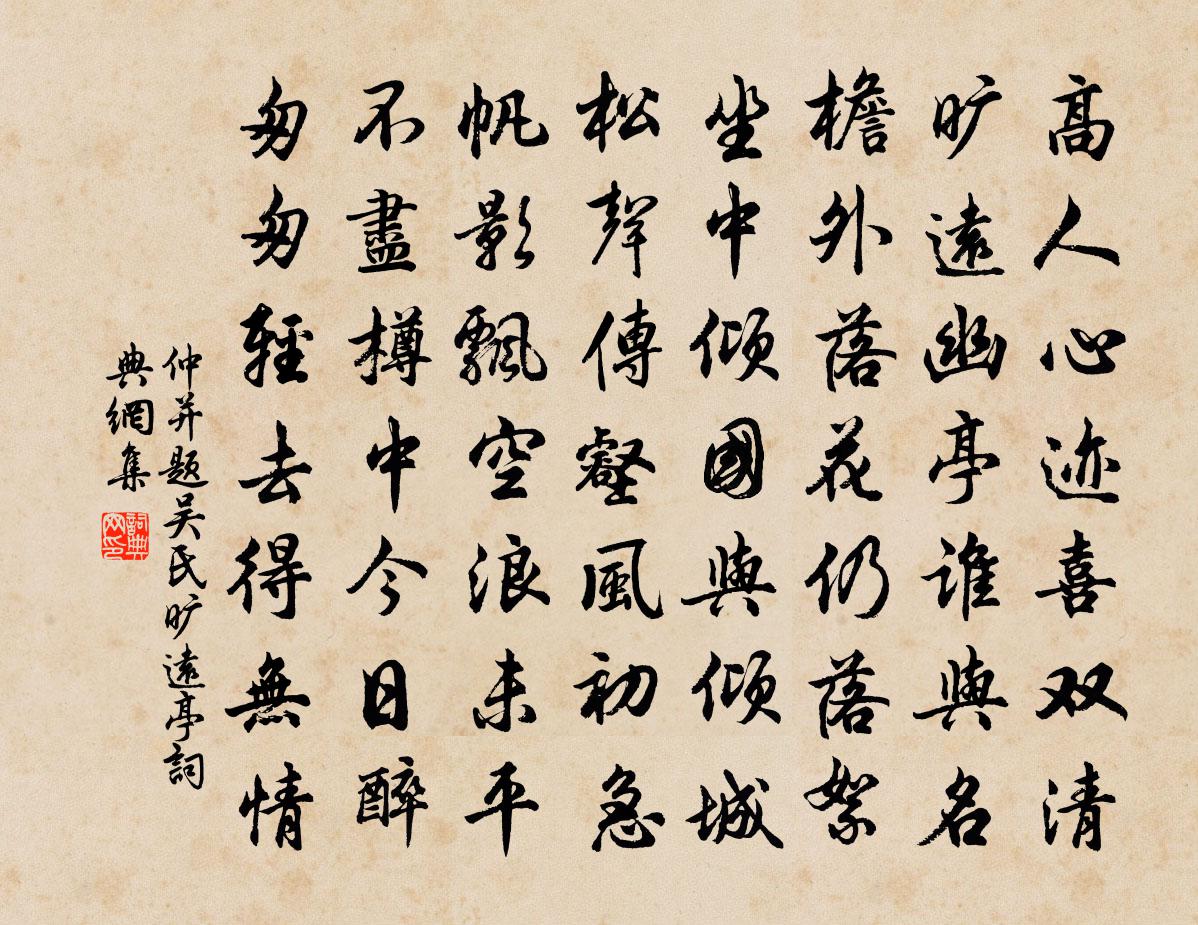 高人心迹喜双清
旷遠幽亭誰與名
檐外落花仍落絮
坐中傾國與傾城
松聲傳壑風初急
帆影飄空浪未平
不盡樽中今日醉
匆匆輕去得無情
仲并题吴氏旷遠亭詞
典網集
詞典网印